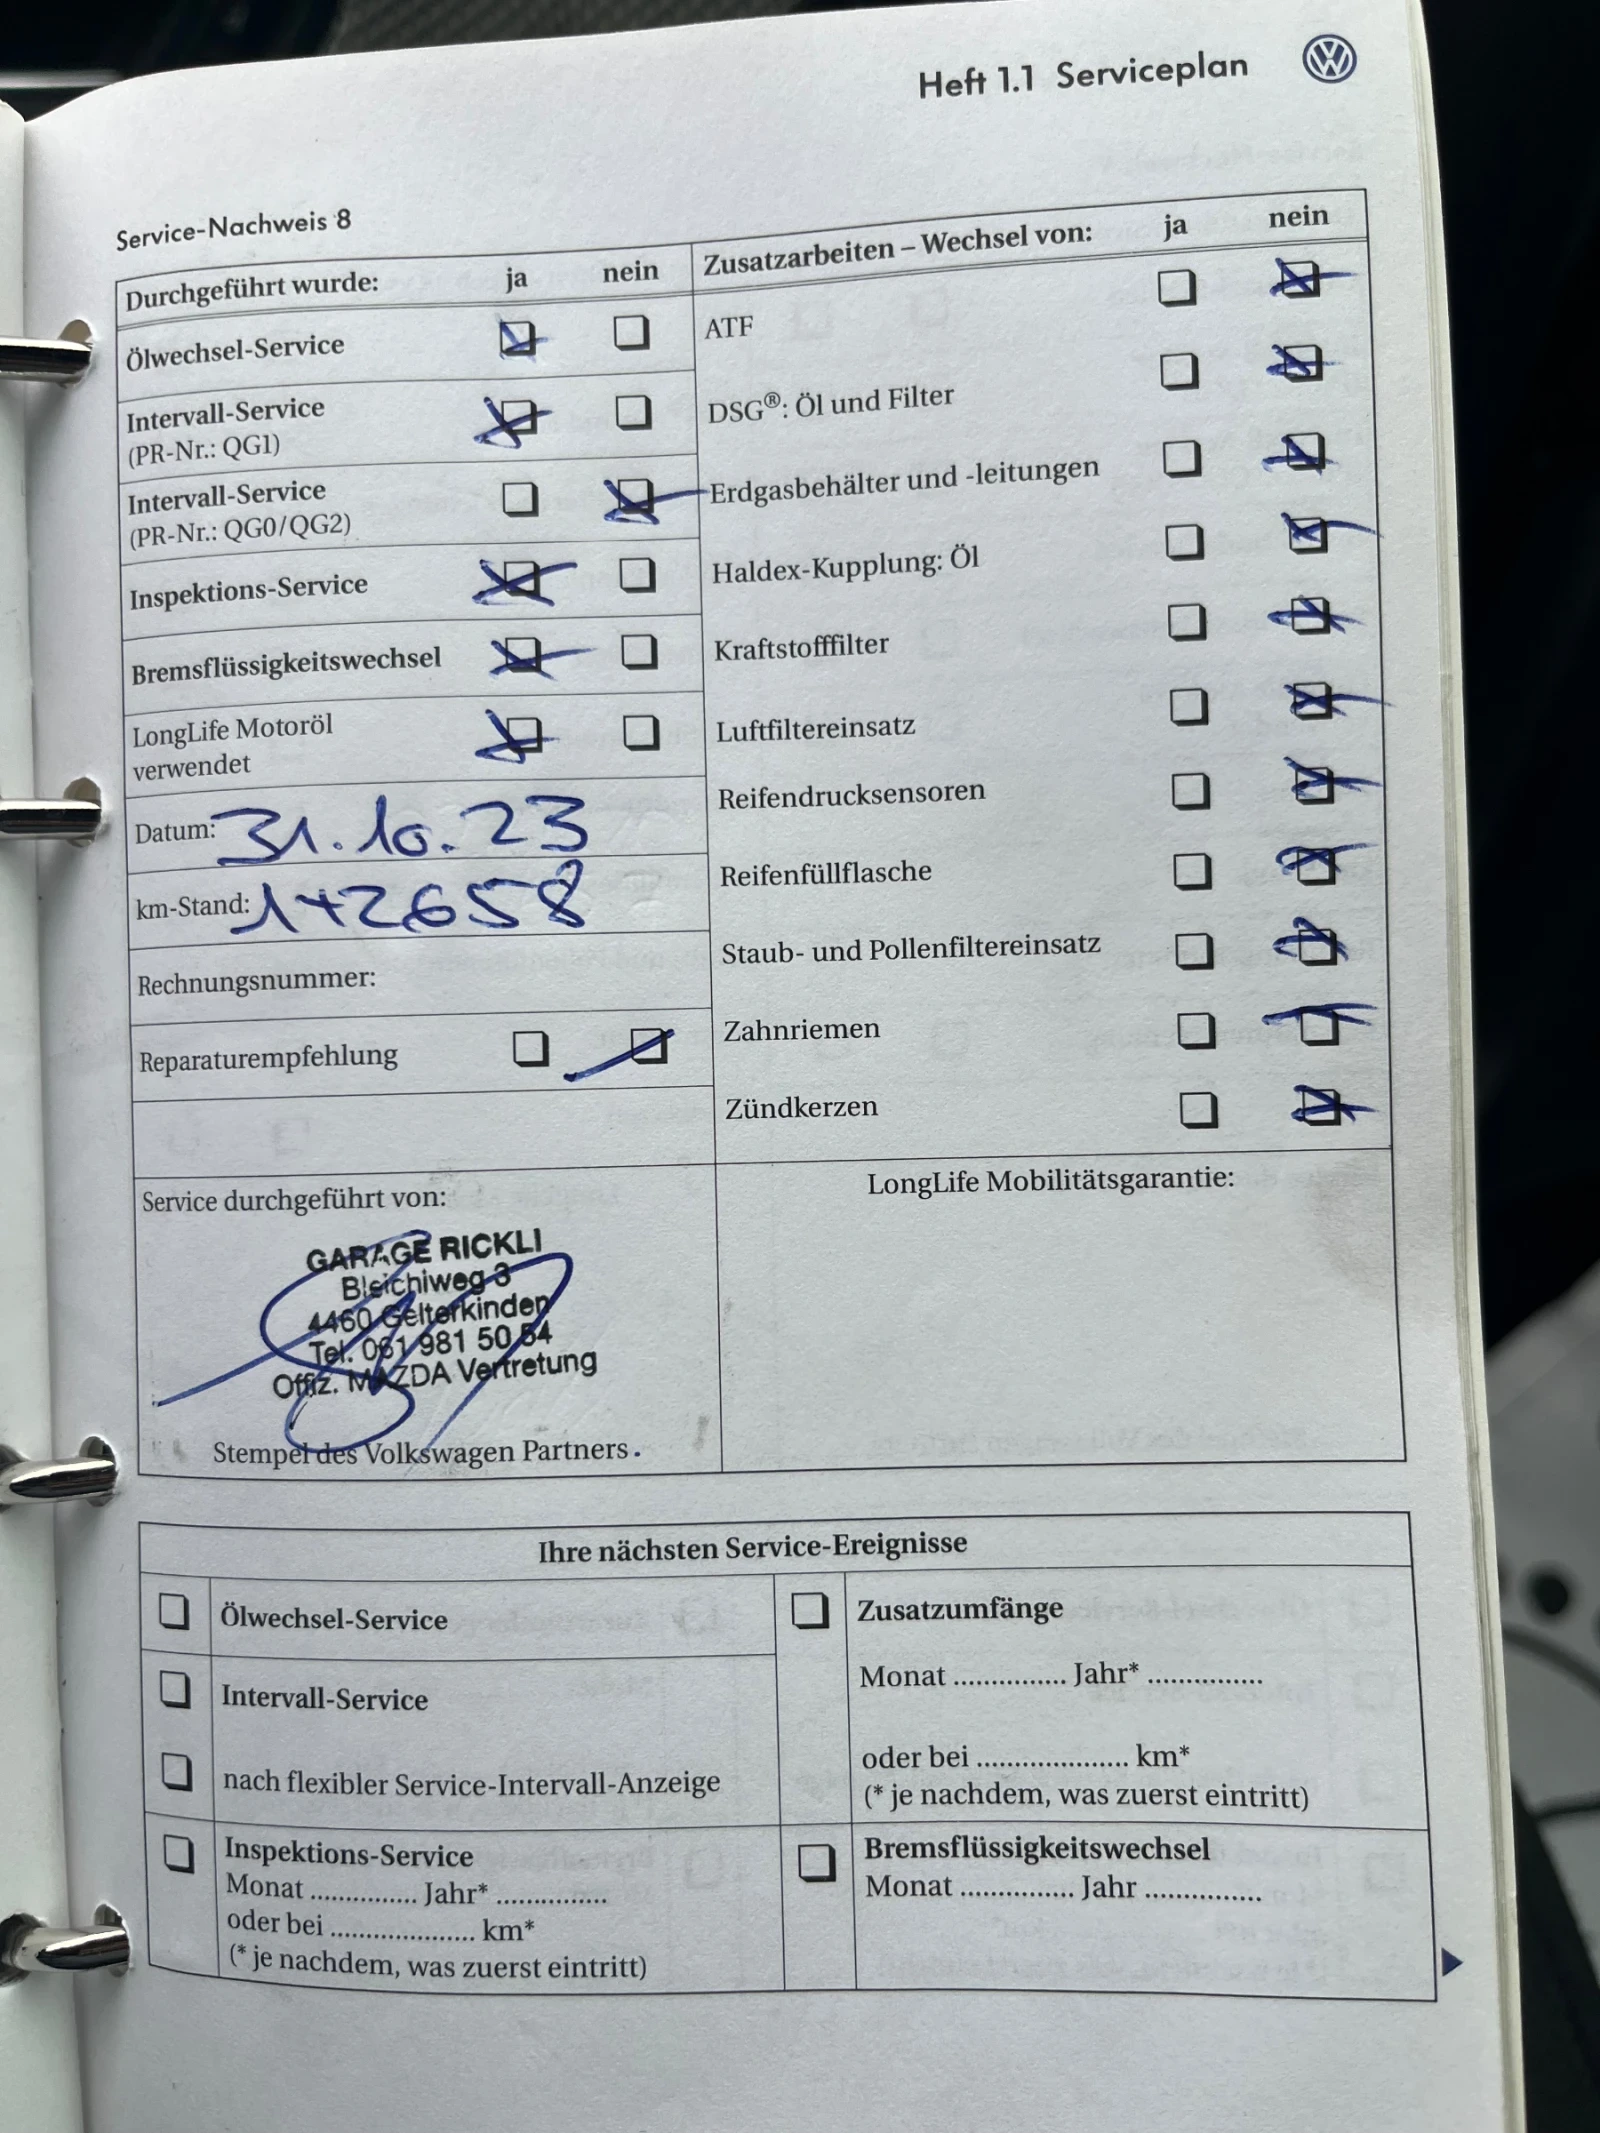 Heft 1.1 Serviceplan
Service-Nachweis 8
Durchgeführt wurde: ja nein
Ölwechsel-Service
Intervall-Service
(PR-Nr.: QG1)
Intervall-Service
(PR-Nr.: QG0/QG2)
Inspektions-Service
Bremsflüssigkeitswechsel
LongLife Motoröl
verwendet
Datum: 31.10.23
km-Stand: 142658
Rechnungsnummer:
Reparaturempfehlung
Zusatzarbeiten – Wechsel von: ja nein
ATF
DSG®: Öl und Filter
Erdgasbehälter und -leitungen
Haldex-Kupplung: Öl
Kraftstofffilter
Luftfiltereinsatz
Reifendrucksensoren
Reifenfüllflasche
Staub- und Pollenfiltereinsatz
Zahnriemen
Zündkerzen
Service durchgeführt von:
GARAGE RICKLI
Bleichiweg 3
4460 Gelterkinden
Tel. 061 981 50 54
Offiz. MAZDA Vertretung
Stempel des Volkswagen Partners.
LongLife Mobilitätsgarantie:
Ihre nächsten Service-Ereignisse
Ölwechsel-Service
Intervall-Service
nach flexibler Service-Intervall-Anzeige
Inspektions-Service
Monat ............... Jahr* ...............
oder bei .................... km*
(* je nachdem, was zuerst eintritt)
Zusatzumfänge
Monat ............... Jahr* ...............
oder bei .................... km*
(* je nachdem, was zuerst eintritt)
Bremsflüssigkeitswechsel
Monat ............... Jahr ...............